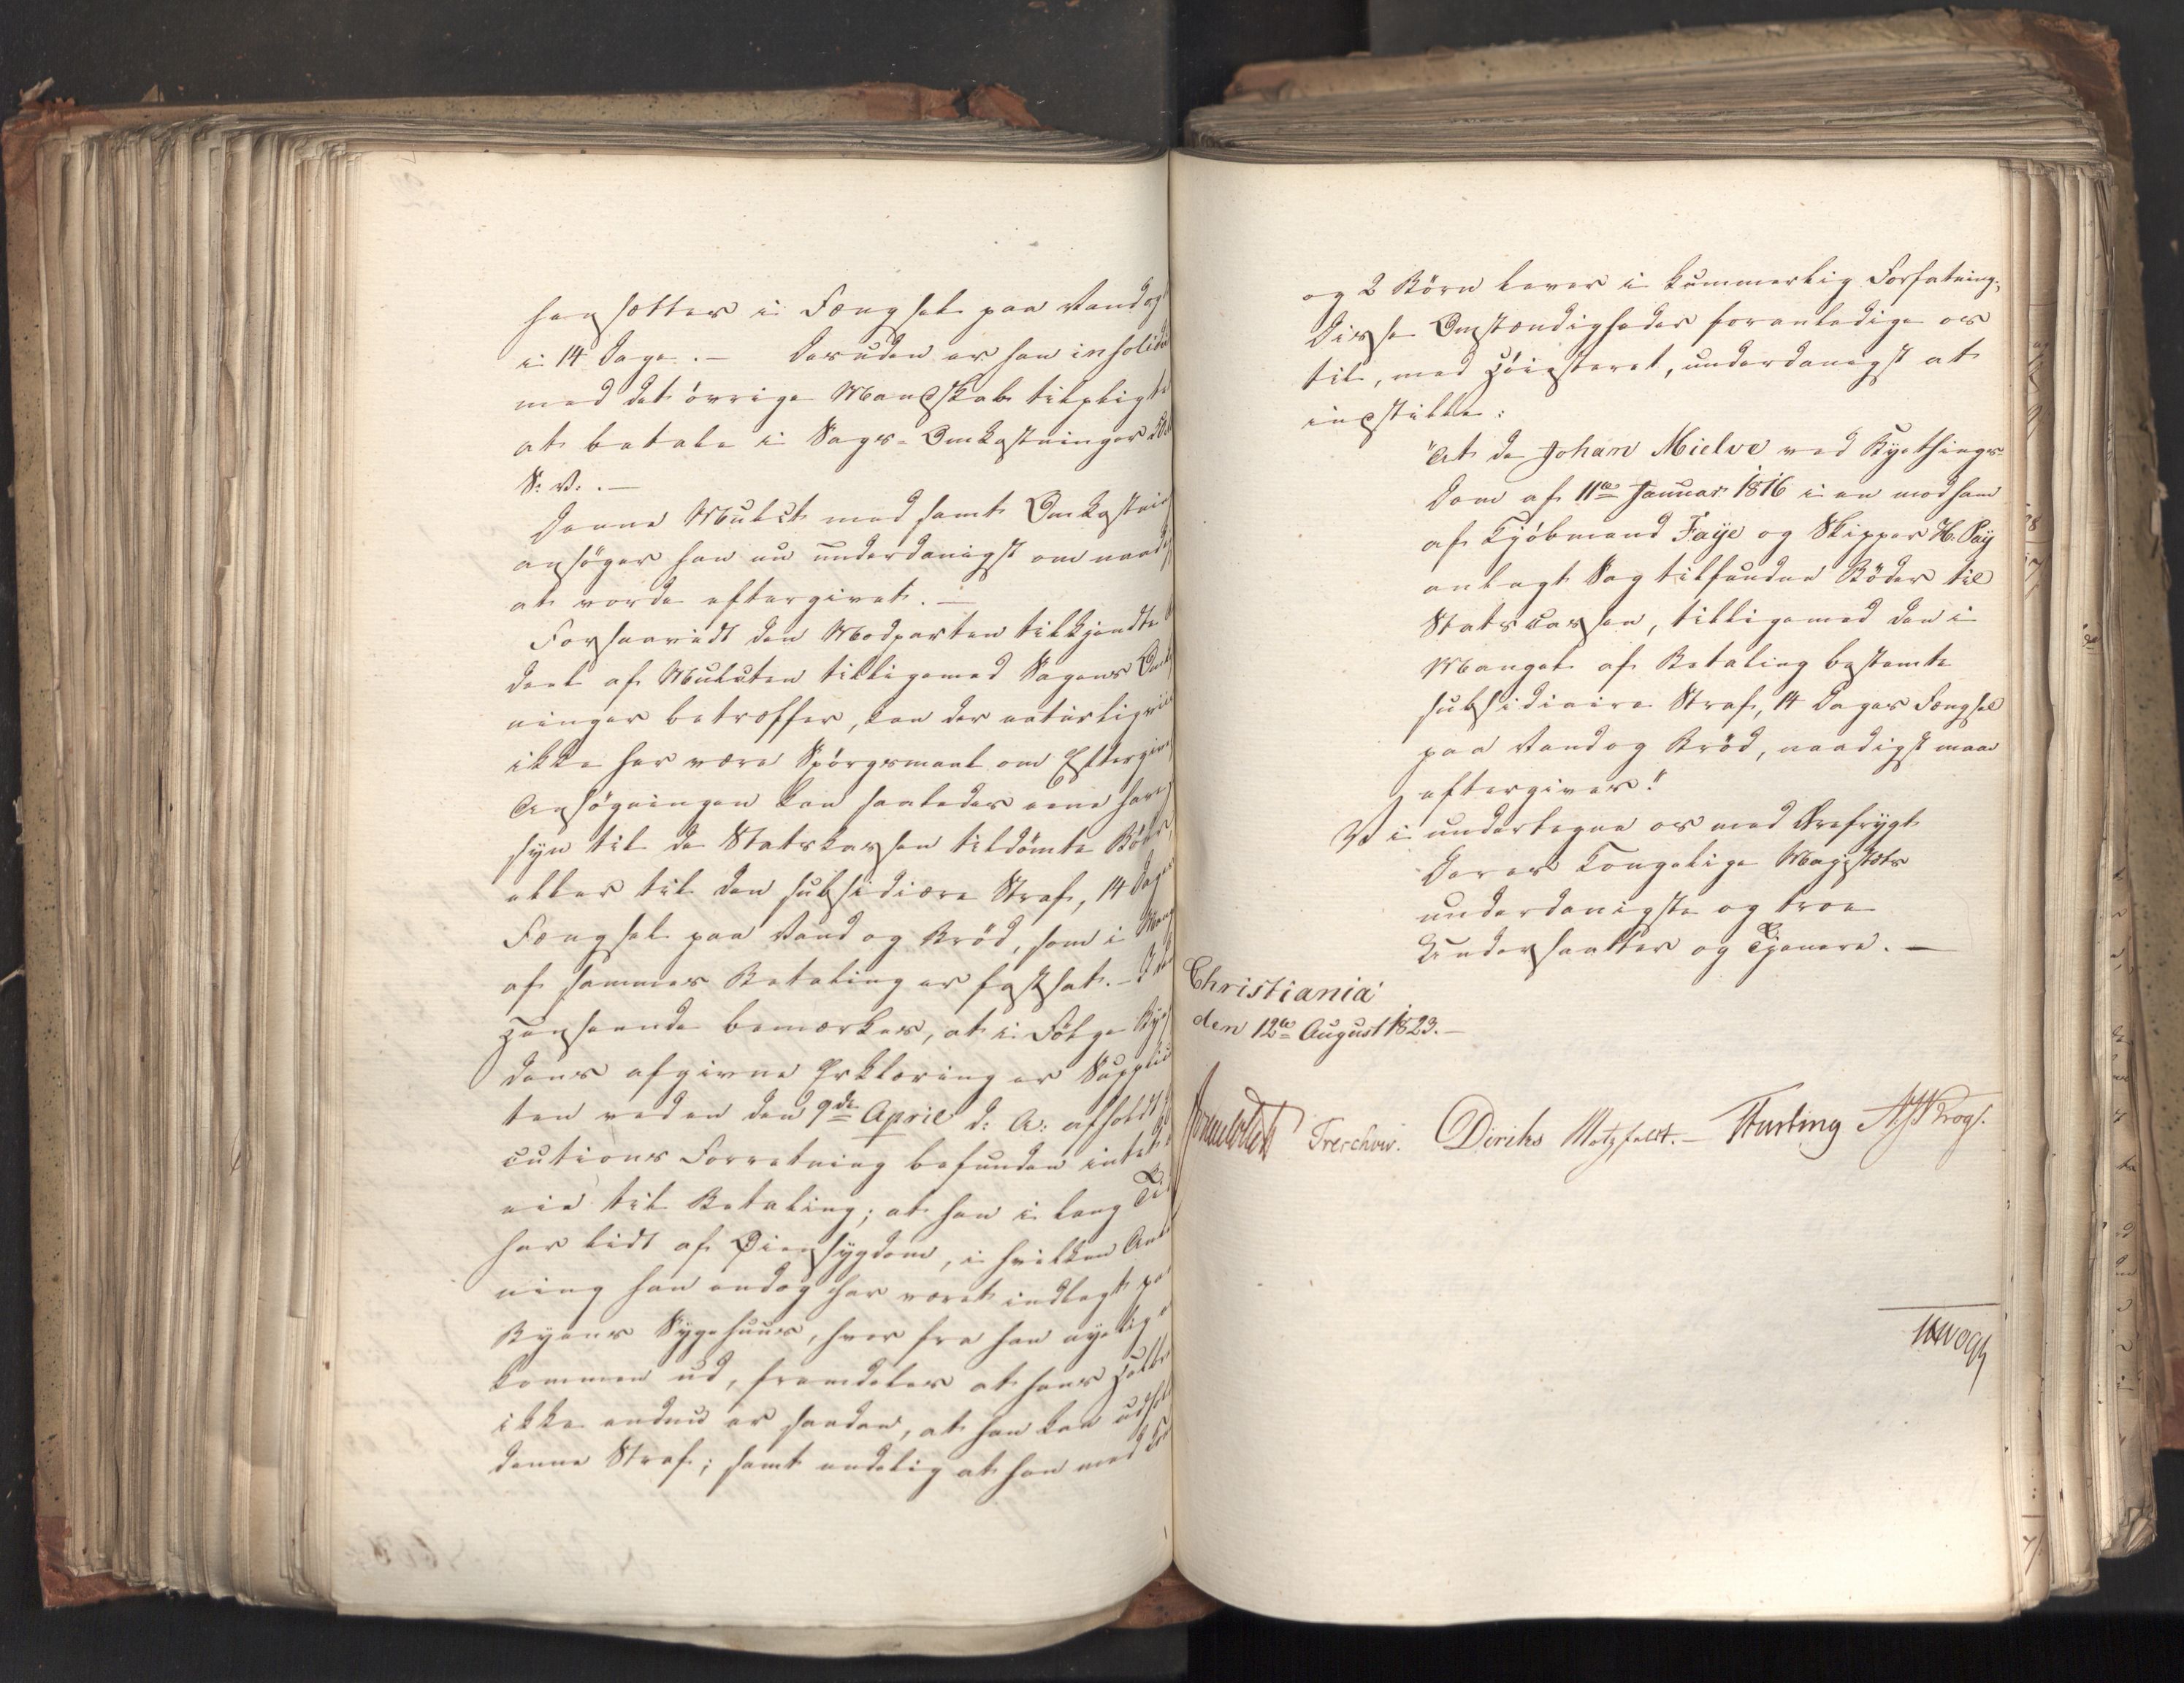 hensættes i Fængsel paa Vand og
i 14 Dage. – Desuden er han in solidum
med det øvrige Mandskab tilpligtet
at betale i Sags-Omkostninger
S: V: . –
Denne Mulct med samt Omkostnin
ansøger han nu underdanigst om naadigst
at vorde eftergivet. –
Forsaavidt den Modparten tilkjendte
Deel af Mulcten tilligemed Sagens Omkost
ninger betræffer, kan der naturligviis
ikke her være Spørgsmaal om Eftergivelse
Ansøgningen kan saaledes ene have
syn til de Statskassen tildømte Bøder,
eller til den subsidiære Straf, 14 Dages
Fængsel paa Vand og Brød, som i Mangel
af sammes Betaling er fastsat. –
Henseende bemærkes, at i Følge Byefo
dens afgivne Erklæring er Supplican
ten ved en den 9de April d: A: afholdt Exe
cutions Forretning befunden intet at
eie til Betaling; at han i lang Tid
har lidt af Øiensygdom, i hvilken Anled
ning han endog har været indlagt paa
Byens Sygehuus, hvor fra han nyelig er
kommen ud, fremdeles at hans Helbred
ikke endnu er saadan, at han kan udholde
denne Straf; samt endelig at han med Kone
og 2 Børn lever i kummerlig Forfatning.
Disse Omstændigheder foranledige os
til, med Høiesteret, underdanigst at
indstille:
"At de Johan Mielve ved Byethings-
dom af 11te Januar 1816 i en mod ham
af Kjøbmand Faÿe og Skipper H. Paÿ
anlagt Sag tilfundne Bøder til
Statscassen, tilligemed den i
Mangel af Betaling bestemte
subsidiaire Straf, 14 Dages Fængsel
paa Vand og Brød, naadigst maae
eftergives."
Vi undertegne os med Ærefrygt
Deres Kongelige Majestæts
underdanigste og troe
Undersaatter og Tjenere. –
Christiania
den 12te August 1823. –
Sommerhielm Treschow. Diriks Motzfeldt. – Fasting M. Krog.
Vogt